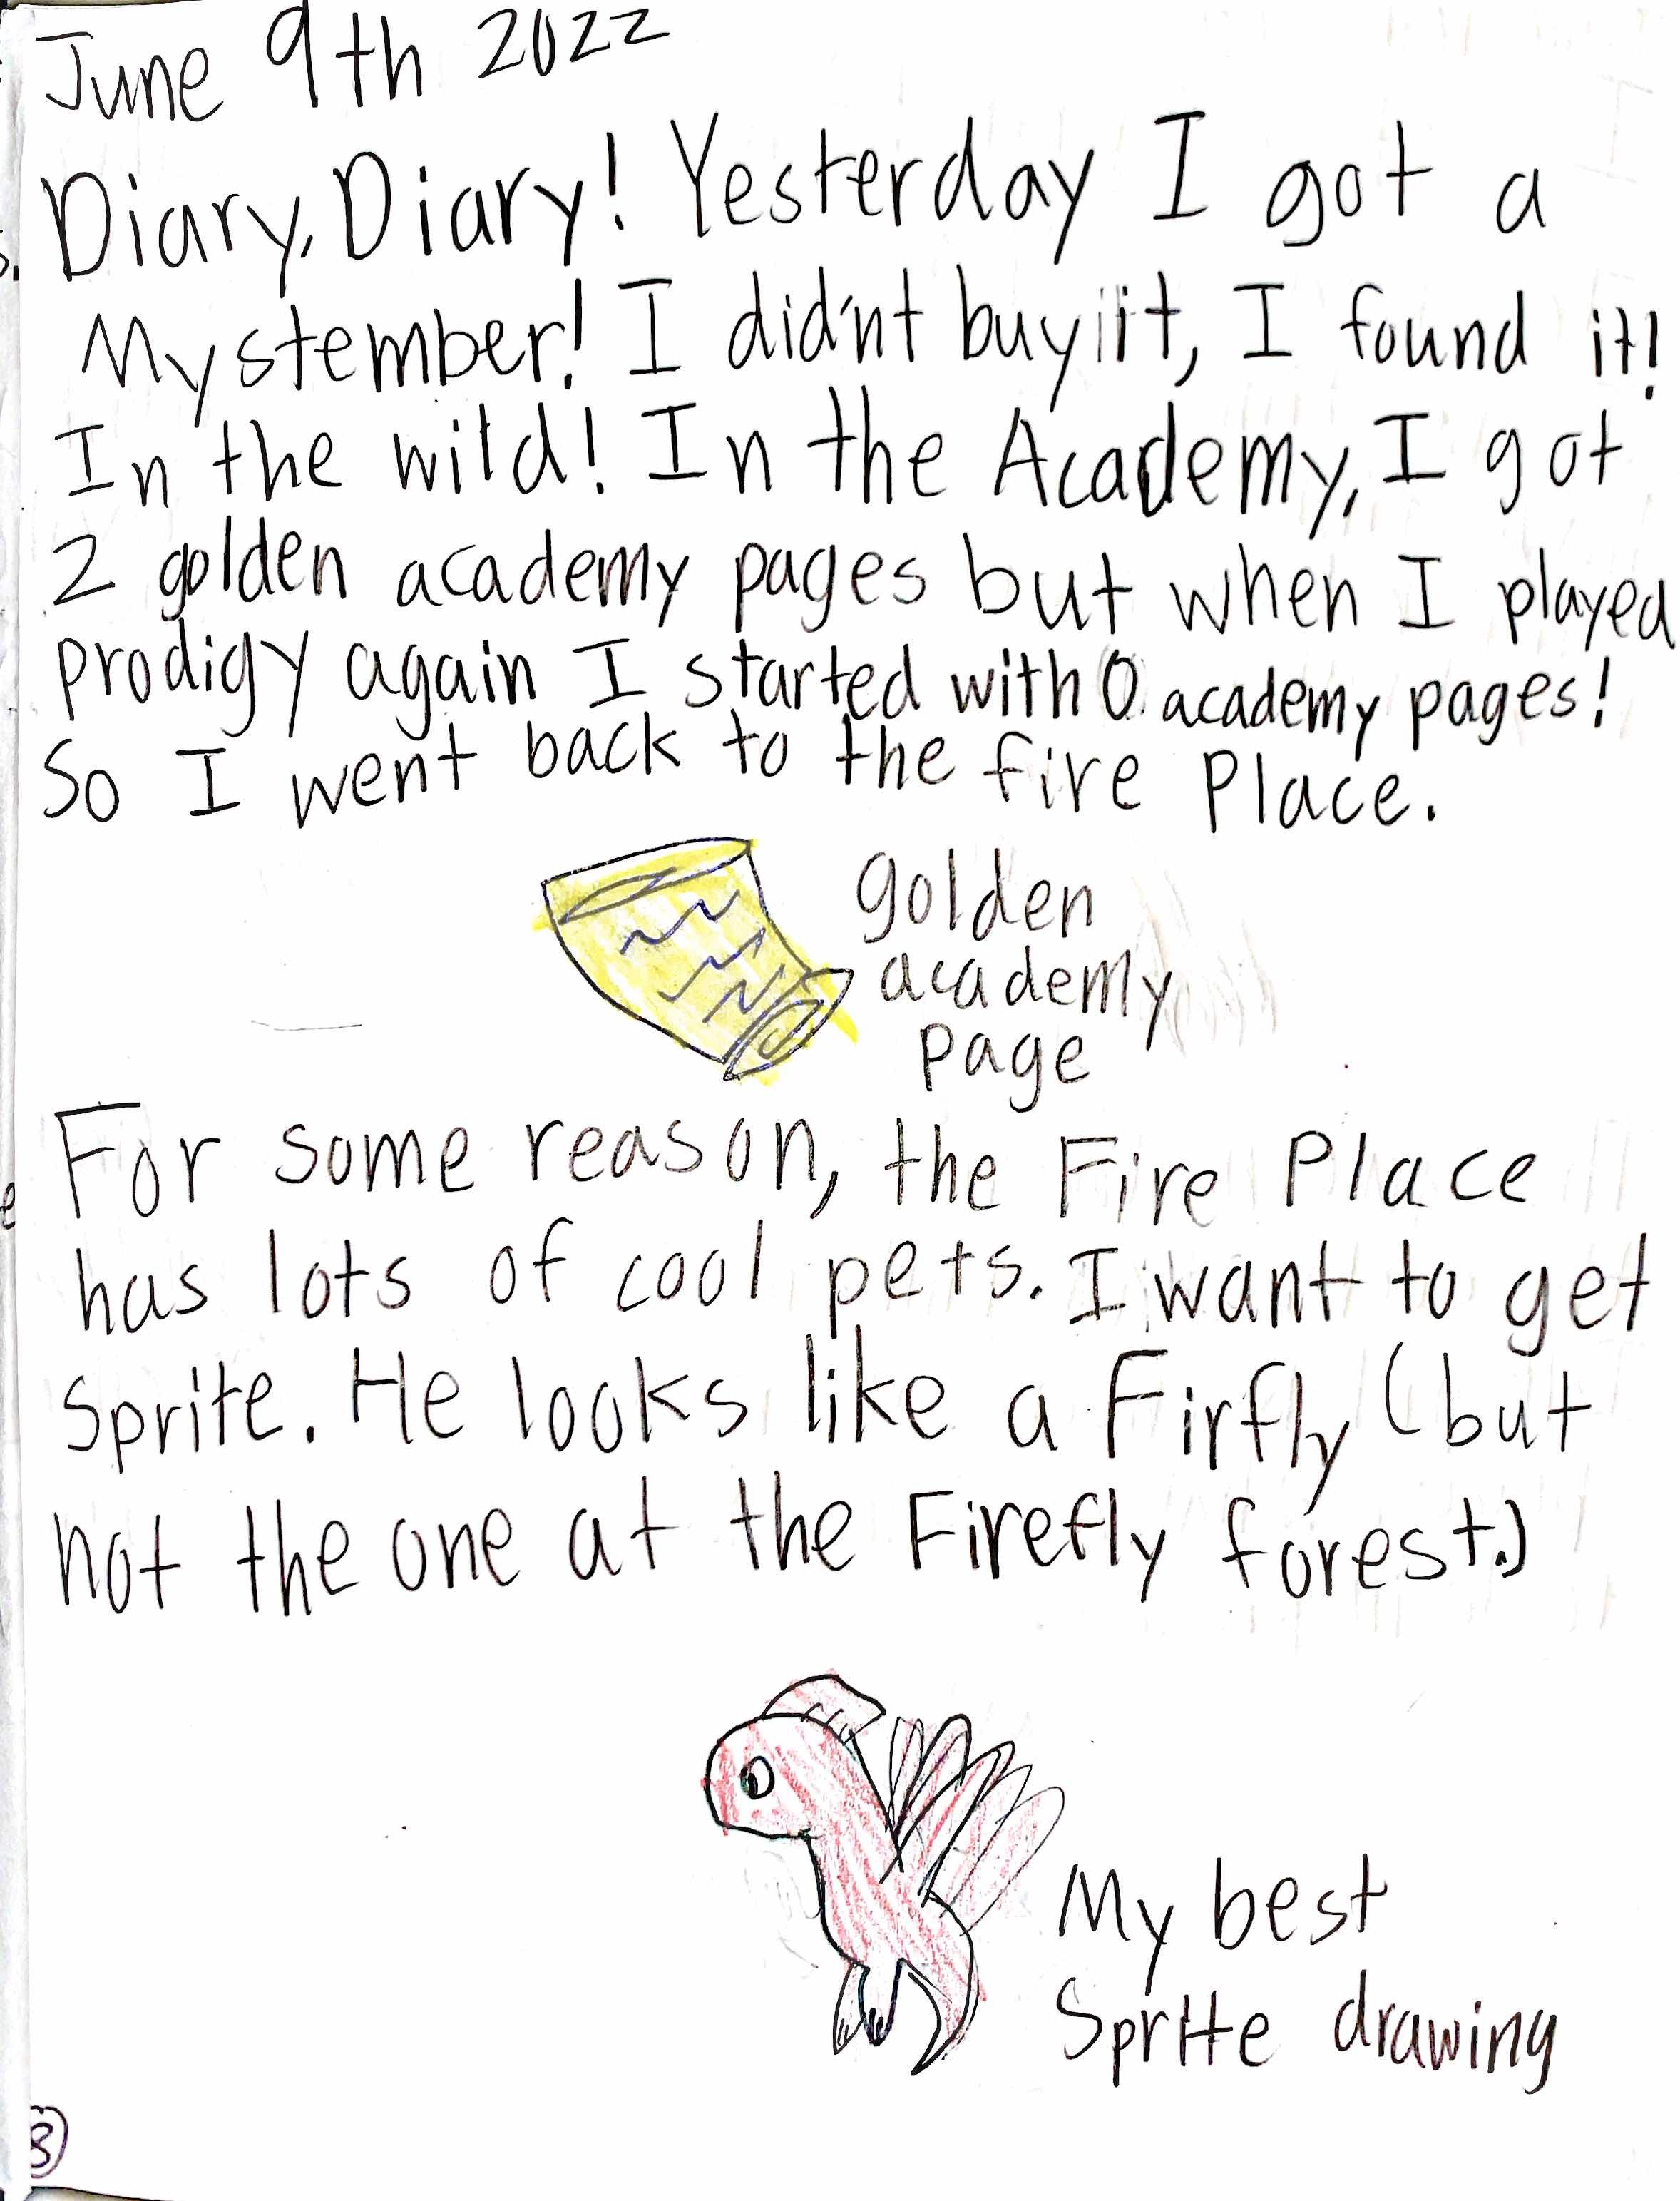 June 9th 2022
Diary, Diary! Yesterday I got a
Mystember! I did'nt buy it, I found it!
In the wild! In the Academy, I got
2 golden academy pages but when I played
prodigy again I started with 0 academy pages!
So I went back to the fire Place.
golden
academy
page
For some reason, the Fire Place
has lots of cool pets. I want to get
Sprite. He looks like a Firfly (but
not the one at the Firefly forest.)
My best
Sprite drawing